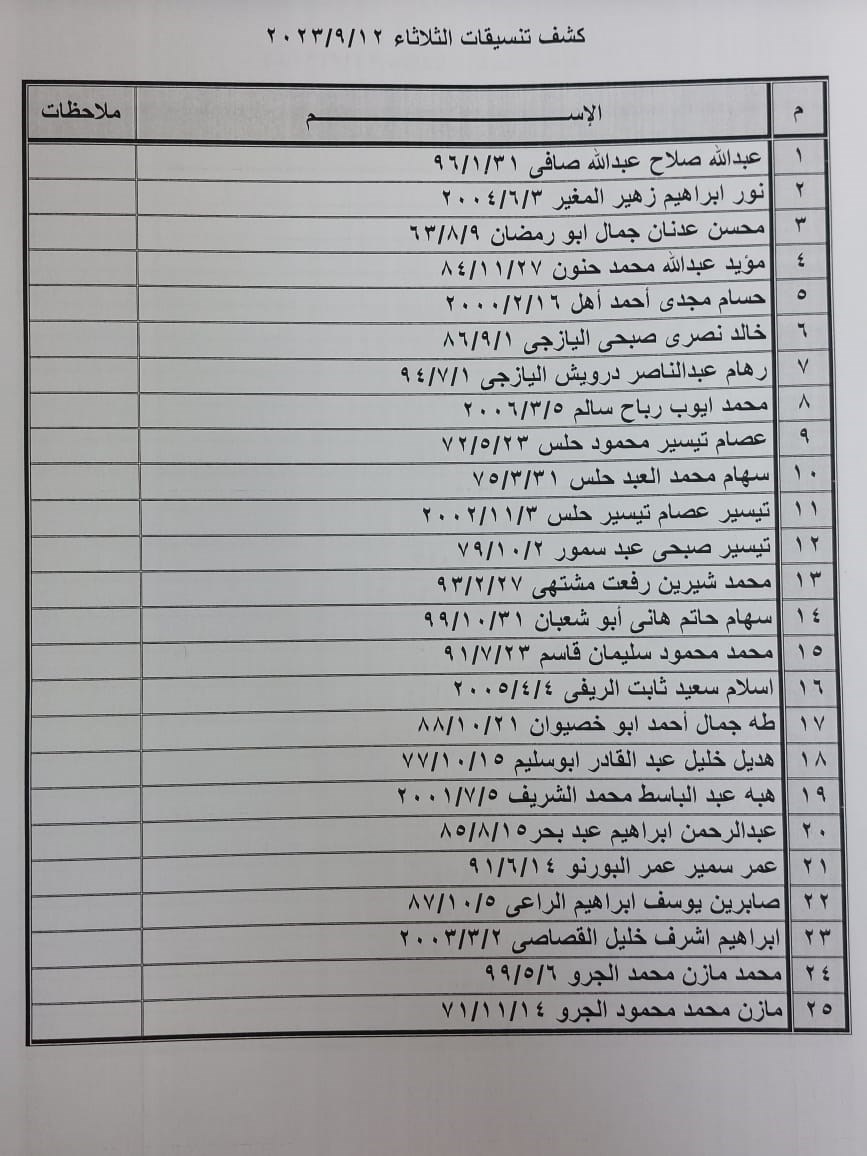 كشف تنسيقات الثلاثاء ٢٠٢٣/٩/١٢
م الإســـــــم ملاحظات
١ عبدالله صلاح عبدالله صافى ٩٦/١/٣١
٢ نور ابراهيم زهير المغير ٢٠٠٤/٦/٣
٣ محسن عدنان جمال ابو رمضان ٦٣/٨/٩
٤ مؤيد عبدالله محمد حنون ٨٤/١١/٢٧
٥ حسام مجدى أحمد أهل ٢٠٠٠/٢/١٦
٦ خالد نصرى صبحى اليازجى ٨٦/٩/١
٧ رهام عبدالناصر درويش اليازجى ٩٤/٧/١
٨ محمد ايوب رباح سالم ٢٠٠٦/٣/٥
٩ عصام تيسير محمود حلس ٧٢/٥/٢٣
١٠ سهام محمد العبد حلس ٧٥/٣/٣١
١١ تيسير عصام تيسير حلس ٢٠٠٢/١١/٣
١٢ تيسير صبحى عبد سمور ٧٩/١٠/٢
١٣ محمد شيرين رفعت مشتهى ٩٣/٢/٢٧
١٤ سهام حاتم هانى أبو شعبان ٩٩/١٠/٣١
١٥ محمد محمود سليمان قاسم ٩١/٧/٢٣
١٦ اسلام سعيد ثابت الريفى ٢٠٠٥/٤/٤
١٧ طه جمال أحمد ابو خصيوان ٨٨/١٠/٢١
١٨ هديل خليل عبد القادر ابوسليم ٧٧/١٠/١٥
١٩ هبه عبد الباسط محمد الشريف ٢٠٠١/٧/٥
٢٠ عبدالرحمن ابراهيم عبد بحر٨٥/٨/١٥
٢١ عمر سمير عمر البورنو ٩١/٦/١٤
٢٢ صابرين يوسف ابراهيم الراعى ٨٧/١٠/٥
٢٣ ابراهيم اشرف خليل القصاصى ٢٠٠٣/٣/٢
٢٤ محمد مازن محمد الجرو ٩٩/٥/٦
٢٥ مازن محمد محمود الجرو ٧١/١١/١٤